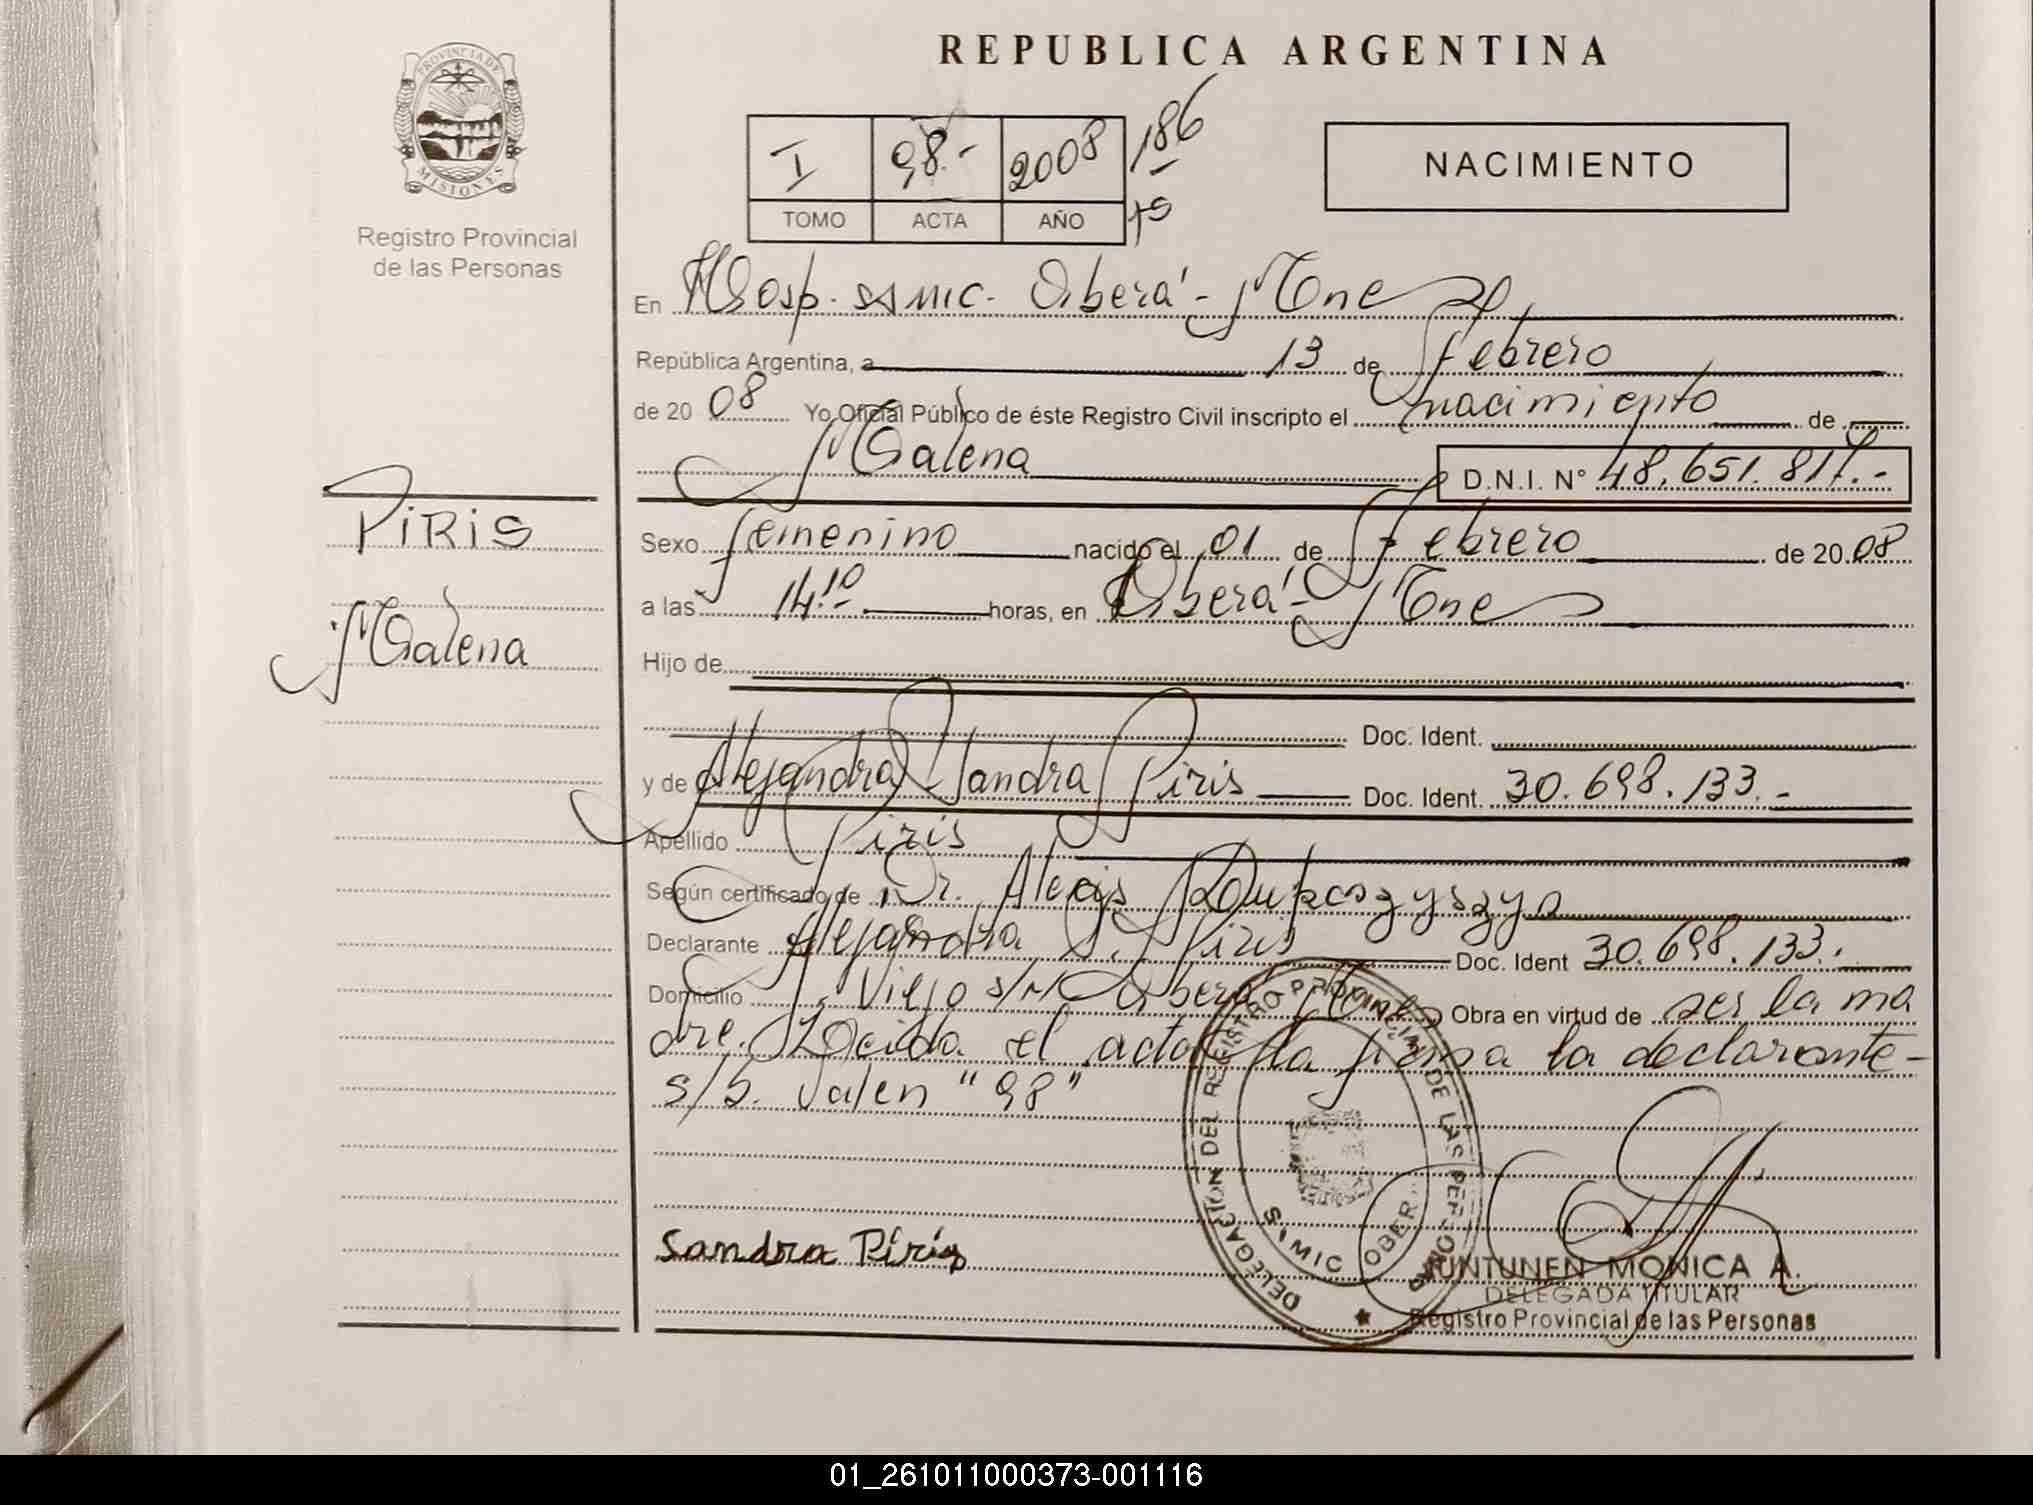 PROVINCIA DE
MISIONES
Registro Provincial
de las Personas
REPUBLICA ARGENTINA
I 98.- 2008 186
TOMO ACTA AÑO
NACIMIENTO
En Hosp. SAMIC. Oberá - Mnes
República Argentina, a 13 de Febrero
de 20 08 Yo Oficial Público de éste Registro Civil inscripto el nacimiento de
Malena D.N.I. Nº
PIRIS
Malena
Sexo femenino nacido el 01 de Febrero de 20 08
a las 14.10 horas, en Oberá - Mnes
Hijo de
Doc. Ident.
y de Alejandra Sandra Piris Doc. Ident. 30.698.133.-
Apellido Piris
Según certificado de Dr. Alexis
Declarante Alejandra S. Piris Doc. Ident 30.698.133.-
Domicilio Viejo s/n Oberá Mnes Obra en virtud de ser la ma
dre. Leída el acta la firma la declarante -
s/b. Valen "98"
Sandra Piris
DELEGACION DEL REGISTRO PROVINCIAL DE LAS PERSONAS
SAMIC OBER
JUNTUNEN MONICA A.
DELEGADA TITULAR
Registro Provincial de las Personas
01_261011000373-001116